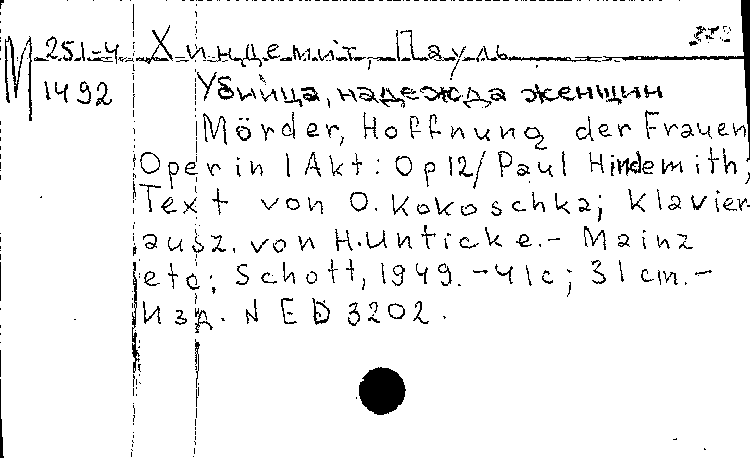 М 251-4 Хиндемит, Пауль
1492 Убийца, надежда женщин
Mörder, Hoffnung der Frauen
Oper in 1 Akt: Op 12/ Paul Hindemith;
Text von O. Kokoschka; Klavier
ausz. von H. Unticke.- Mainz
etc; Schott, 1949. -41c; 31 cm.-
Изд. N ED 3202.